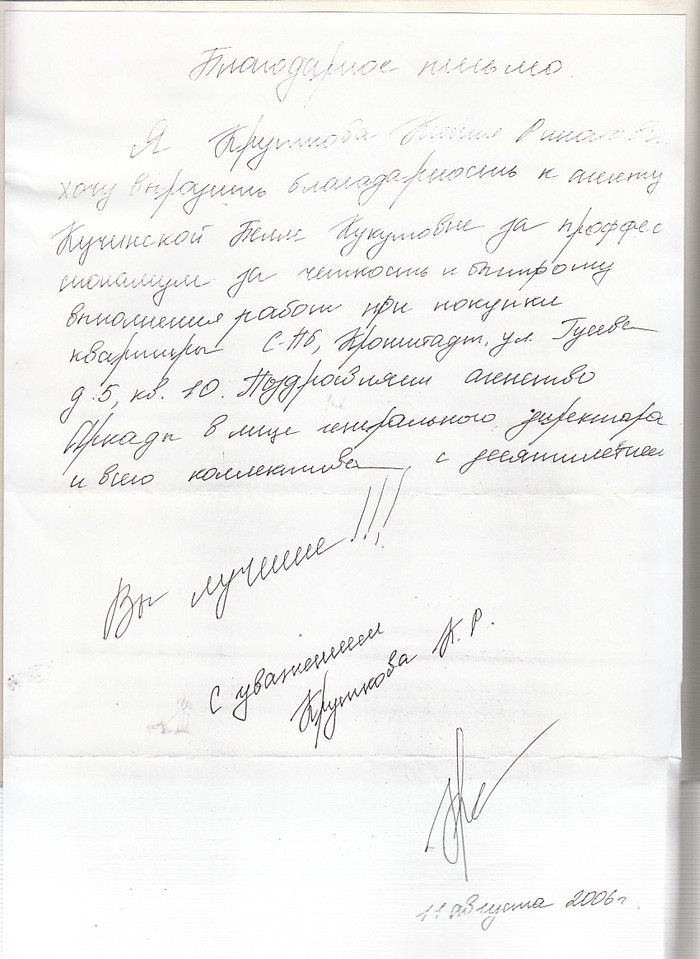 Благодарное письмо
Я Круткова
хочу выразить благодарность к агенту
Кучинской Белле Кукуловне за проффес
сионализм за четкость и быстроту
выполнения работ при покупки
квартиры С-Пб, Кронштадт, ул. Гусева
д. 5, кв. 10. Поздравляем агенство
Аркада в лице генерального директора
и всего коллектива, с десятилетием
Вы лучшие!!!
С уважением
Круткова К. Р.
11 августа 2006 г.